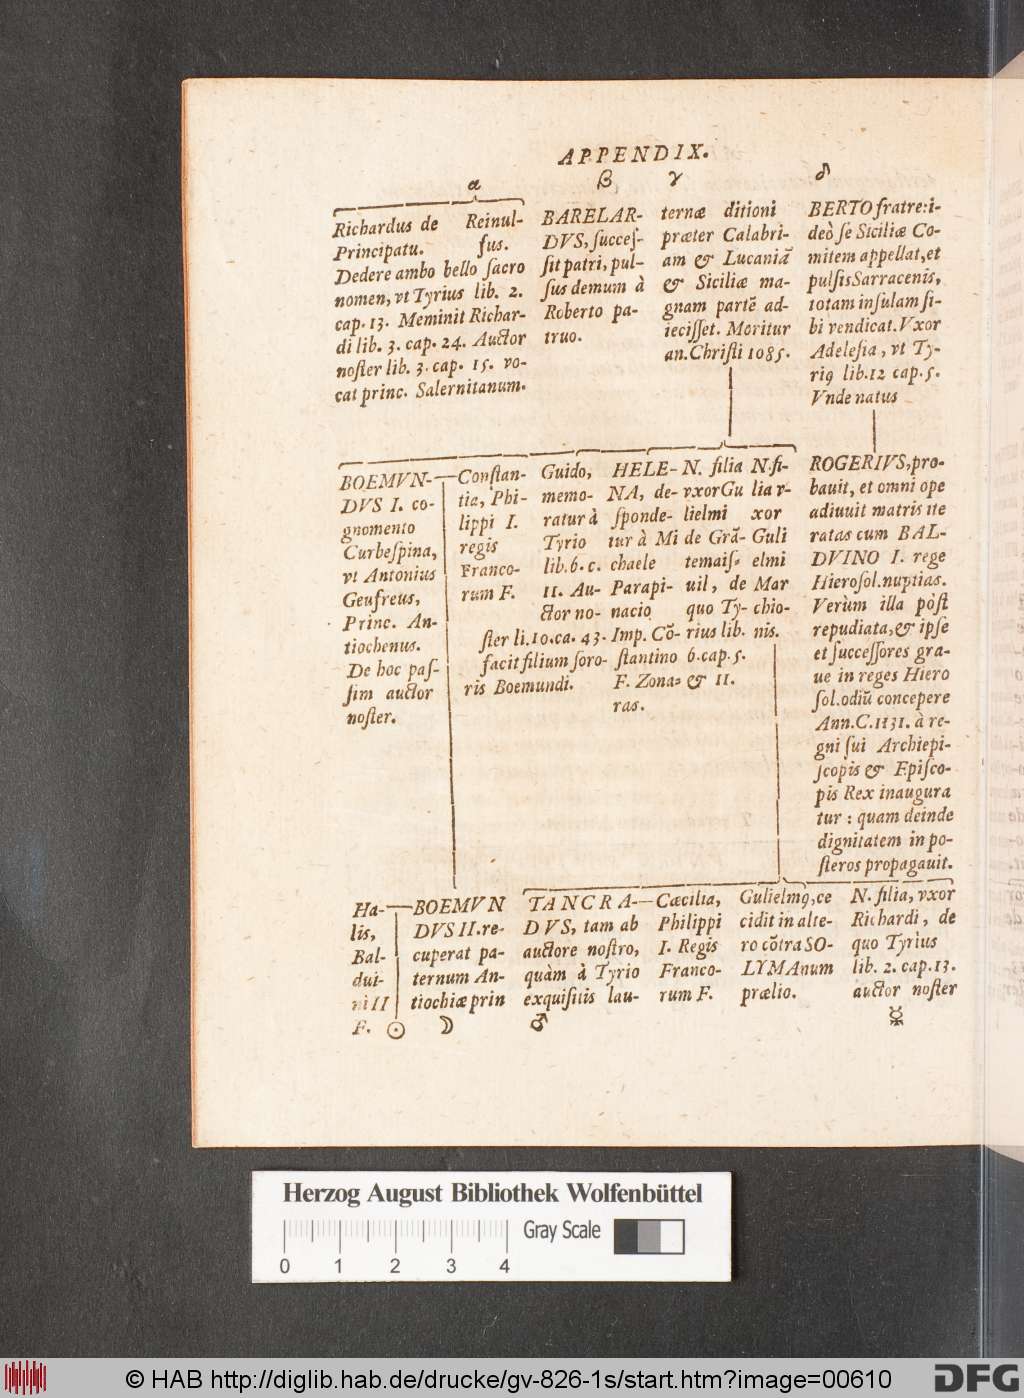 APPENDIX.
α
Richardus de Reinul-
Principatu. fus.
Dedere ambo bello sacro
nomen, vt Tyrius lib. 2.
cap. 13. Meminit Richar-
di lib. 3. cap. 24. Auctor
noster lib. 3. cap. 15. vo-
cat princ. Salernitanum.
β
BARELAR-
DVS, succes-
sit patri, pul-
sus demum à
Roberto pa-
truo.
γ
ternæ ditioni
præter Calabri-
am & Lucaniã
& Siciliæ ma-
gnam partẽ ad-
iecisset. Moritur
an. Christi 1085.
♂
BERTO fratre: i-
deò se Siciliæ Co-
mitem appellat, et
pulsis Sarracenis,
totam insulam si-
bi vendicat. Vxor
Adelesia, vt Ty-
riꝰ lib. 12 cap. 5.
Vnde natus
BOEMVN-
DVS I. co-
gnomento
Curbespina,
vt Antonius
Geufreus,
Princ. An-
tiochenus.
De hoc pas-
sim auctor
noster.
Constan-
tia, Phi-
lippi I.
regis
Franco-
rum F.
Guido,
memo-
ratur à
Tyrio
lib. 6. c.
11. Au-
ctor no-
ster li. 10. ca. 43.
facit filium soro-
ris Boemundi.
HELE-
NA, de-
sponde-
tur à Mi
chaele
Parapi-
nacio
Imp. Cõ-
stantino
F. Zona-
ras.
N. filia
vxor Gu
lielmi
de Grã-
temais-
uil, de
quo Ty-
rius lib.
6. cap. 5.
& 11.
N. fi-
lia v-
xor
Guli
elmi
Mar
chio-
nis.
ROGERIVS, pro-
bauit, et omni ope
adiuuit matris ite
ratas cum BAL-
DVINO I. rege
Hierosol. nuptias.
Verùm illa pòst
repudiata, & ipse
et successores gra-
ue in reges Hiero
sol. odiũ concepere
Ann. C. 1131. à re-
gni sui Archiepi-
scopis & Episco-
pis Rex inaugura
tur: quam deinde
dignitatem in po-
steros propagauit.
Ha-
lis,
Bal-
dui-
ni II
F. ☉
BOEMVN
DVS II. re-
cuperat pa-
ternum An-
tiochiæ prin
☽
TANCRA-
DVS, tam ab
auctore nostro,
quàm à Tyrio
exquisitis lau-
♂
Cæcilia,
Philippi
I. Regis
Franco-
rum F.
Gulielmꝰ, ce
cidit in alte-
ro cõtra SO-
LYMAnum
prælio.
N. filia, vxor
Richardi, de
quo Tyrius
lib. 2. cap. 13.
auctor noster
☿
Herzog August Bibliothek Wolfenbüttel
Gray Scale
0 1 2 3 4
© HAB http://diglib.hab.de/drucke/gv-826-1s/start.htm?image=00610
DFG